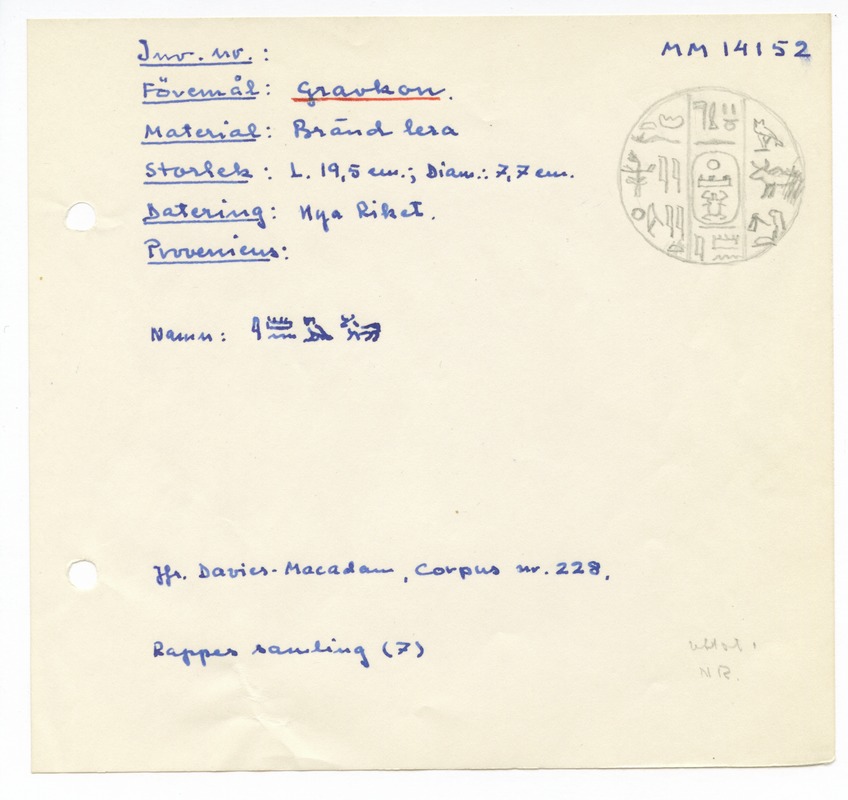 Inv. nr. :
MM 14152
Föremål: Gravkon.
Material: Bränd lera
Storlek : L. 19,5 cm.; Diam.: 7,7 cm.
Datering: Nya Riket.
Proveniens:
Namn:
Jfr. Davies-Macadam, Corpus nr. 228.
Rappes samling (7)
NR.